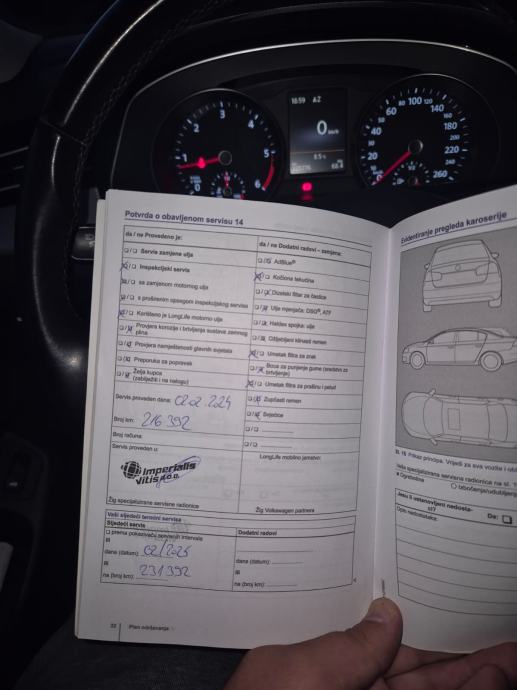 1
2
3
4
5
6
0
1659 AZ
0 km/h
8.5 °C
20
40
60
80
100
120
140
160
180
200
220
240
260
Potvrda o obavljenom servisu 14
da / ne Provedeno je:
da / ne Dodatni radovi – zamjena:
Servis zamjene ulja
Inspekcijski servis
sa zamjenom motornog ulja
s proširenim opsegom inspekcijskog servisa
Korišteno je LongLife motorno ulje
Provjera korozije i brtvljenja sustava zemnog plina
Provjera namještenosti glavnih svjetala
Preporuka za popravak
Želja kupca
(zabilježiti i na nalogu)
AdBlue®
Kočiona tekućina
Dizelski filtar za čestice
Ulje mjenjača: DSG®, ATF
Haldex spojka: ulje
Ožljebljeni klinasti remen
Umetak filtra za zrak
Boca za punjenje gume (sredstvo za brtvljenje)
Umetak filtra za prašinu i pelud
Zupčasti remen
Svjećice
Servis proveden dana: 02.02.2024
Broj km: 216 392
Broj računa:
Servis proveden u:
LongLife mobilno jamstvo:
Imperialis
vitis d.o.o.
Žig specijalizirane servisne radionice
Žig Volkswagen partnera
Vaši sljedeći termini servisa
Sljedeći servis
Dodatni radovi
prema pokazivaču servisnih intervala
ili
dana (datum): 02/2025
dana (datum):
ili
ili
na (broj km): 231 392
na (broj km):
32
Plan održavanja
Evidentiranje pregleda karoserije
Sl. 15 Prikaz principa. Vrijedi za sva vozila
Vaša specijalizirana servisna radionica
Ogrebotine
Izbočenja/udubljenja
Jesu li ustanovljeni nedosta-
ci?
Da:
Opis nedostataka: